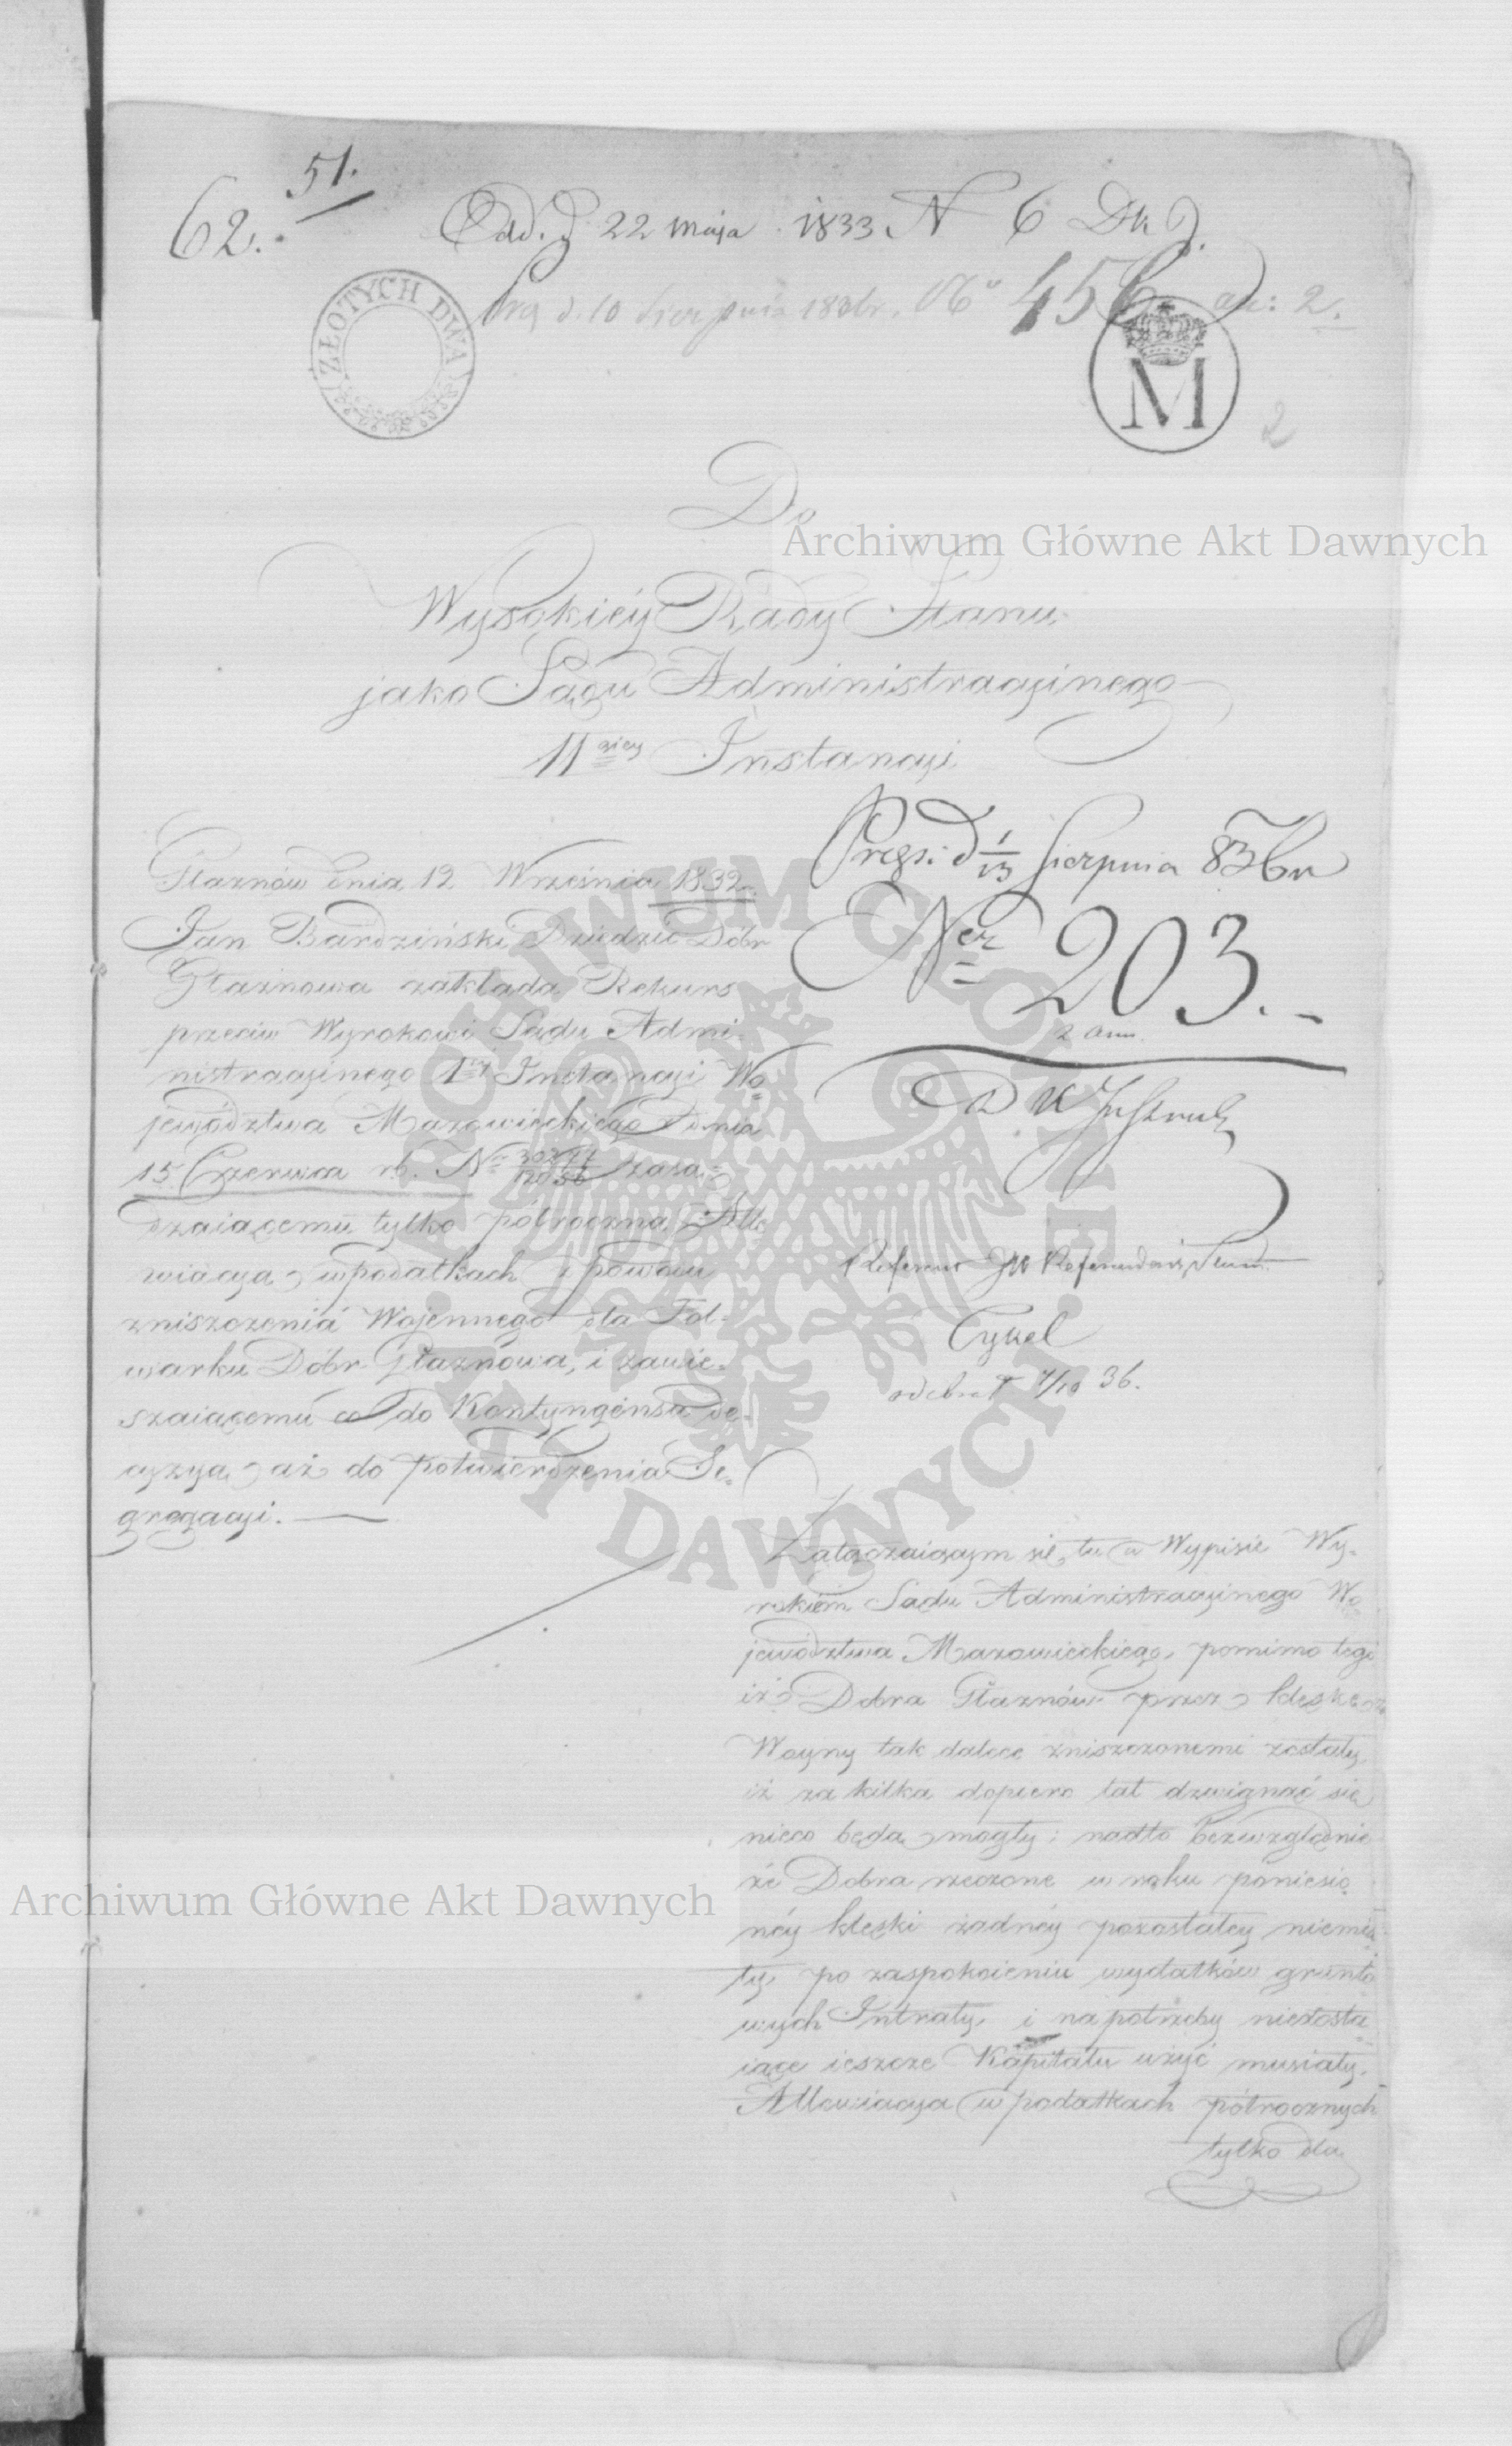 51.
62.
Odd. d 22 maja 1833 N 6 Dk J.
d. 10 Sierpnia 183 br. No 456. an: 2.
ZŁOTYCH DWA
M
2
Do
Wysokiéy Rady Stanu
jako Sądu Administracyinego
II giey Instancyi
Głaznów dnia 12 Września 1832 r.
Jan Bardziński Dziedzic Dóbr
Głaznowa zakłada Rekurs
przeciw Wyrokowi Sądu Admi-
nistracyinego 1éy Instancyi Wo=
jewództwa Mazowieckiego z dnia
15 Czerwca rb. Nr zasą=
dzaiącemu tylko półroczną Alle
wiacyą w podatkach z powodu
zniszczenia Wojennego dla Fol-
warku Dóbr Głaznowa, i zawie-
szaiącemu co do Kontyngensa de-
cyzyą aż do potwierdzenia Se-
gregacyi.
d 1/13 Sierpnia 836 r.
Ner 203.
2 ann.
Referent JW Referendarz Stanu
Cykel
odebrał 7/10 36.
Załączaiącym się tu w Wypisie Wy-
rokiem Sądu Administracyinego Wo
jewództwa Mazowieckiego, pomimo tego
iż Dobra Głaznów przez klęskę
Woyny tak dalece zniszczonemi zostały,
iż za kilka dopiero lat dzwignąć się
nieco będą mogły; nadto bezwzględnie
że Dobra rzeczone w roku poniesio
néy klęski żadnéy pozostałey niemia
ły, po zaspokoieniu wydatków grunto
wych Intraty, i na potrzeby niedosta
iące ieszcze Kapitału użyć musiały,
Allewiacya w podatkach półrocznych
tylko dla
Archiwum Główne Akt Dawnych
Archiwum Główne Akt Dawnych
ARCHIWUM GŁÓWNE AKT DAWNYCH